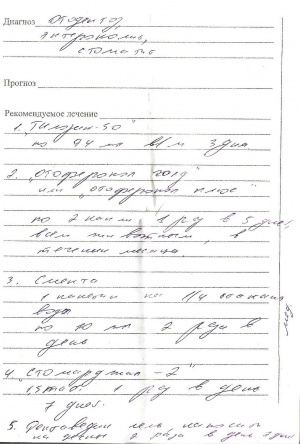 Диагноз Отодектоз,
стоматит
Прогноз
Рекомендуемое лечение
1. "Тилозин-50"
по в/м 3 дня
2. "Отоферонол голд"
или "отоферонол плюс"
по 2 капли 1 раз в 5 дней,
всем животным, в
течении месяца.
3. Смекта
1 пакетик на 1/4 стакана
воды
по 10 мл 2 раза в
день
4. "Стоморджил-2"
1,5 таб. 1 раз в день
7 дней.
5. гель, наносить
на десны 2 раза в день